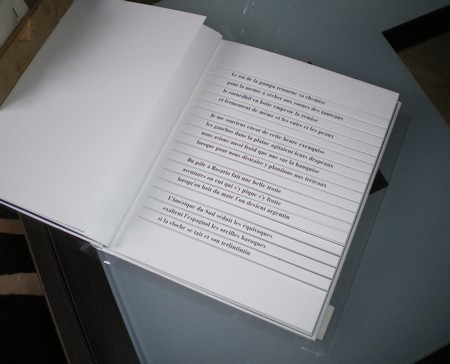 Le roi de la pampa retourne sa chemise
pour la mettre à sécher aux cornes des taureaux
le cornédbîf en boîte empeste la remise
et fermentent de même et les cuirs et les peaux
Je me souviens encor de cette heure exeuquise
les gauchos dans la plaine agitaient leurs drapeaux
nous avions aussi froid que nus sur la banquise
lorsque pour nous distraire y plantions nos tréteaux
Du pôle à Rosario fait une belle trotte
aventures on eut qui s'y pique s'y frotte
lorsqu'on boit du maté l'on devient argentin
L'Amérique du Sud séduit les équivoques
exaltent l'espagnol les oreilles baroques
si la cloche se tait et son terlintintin